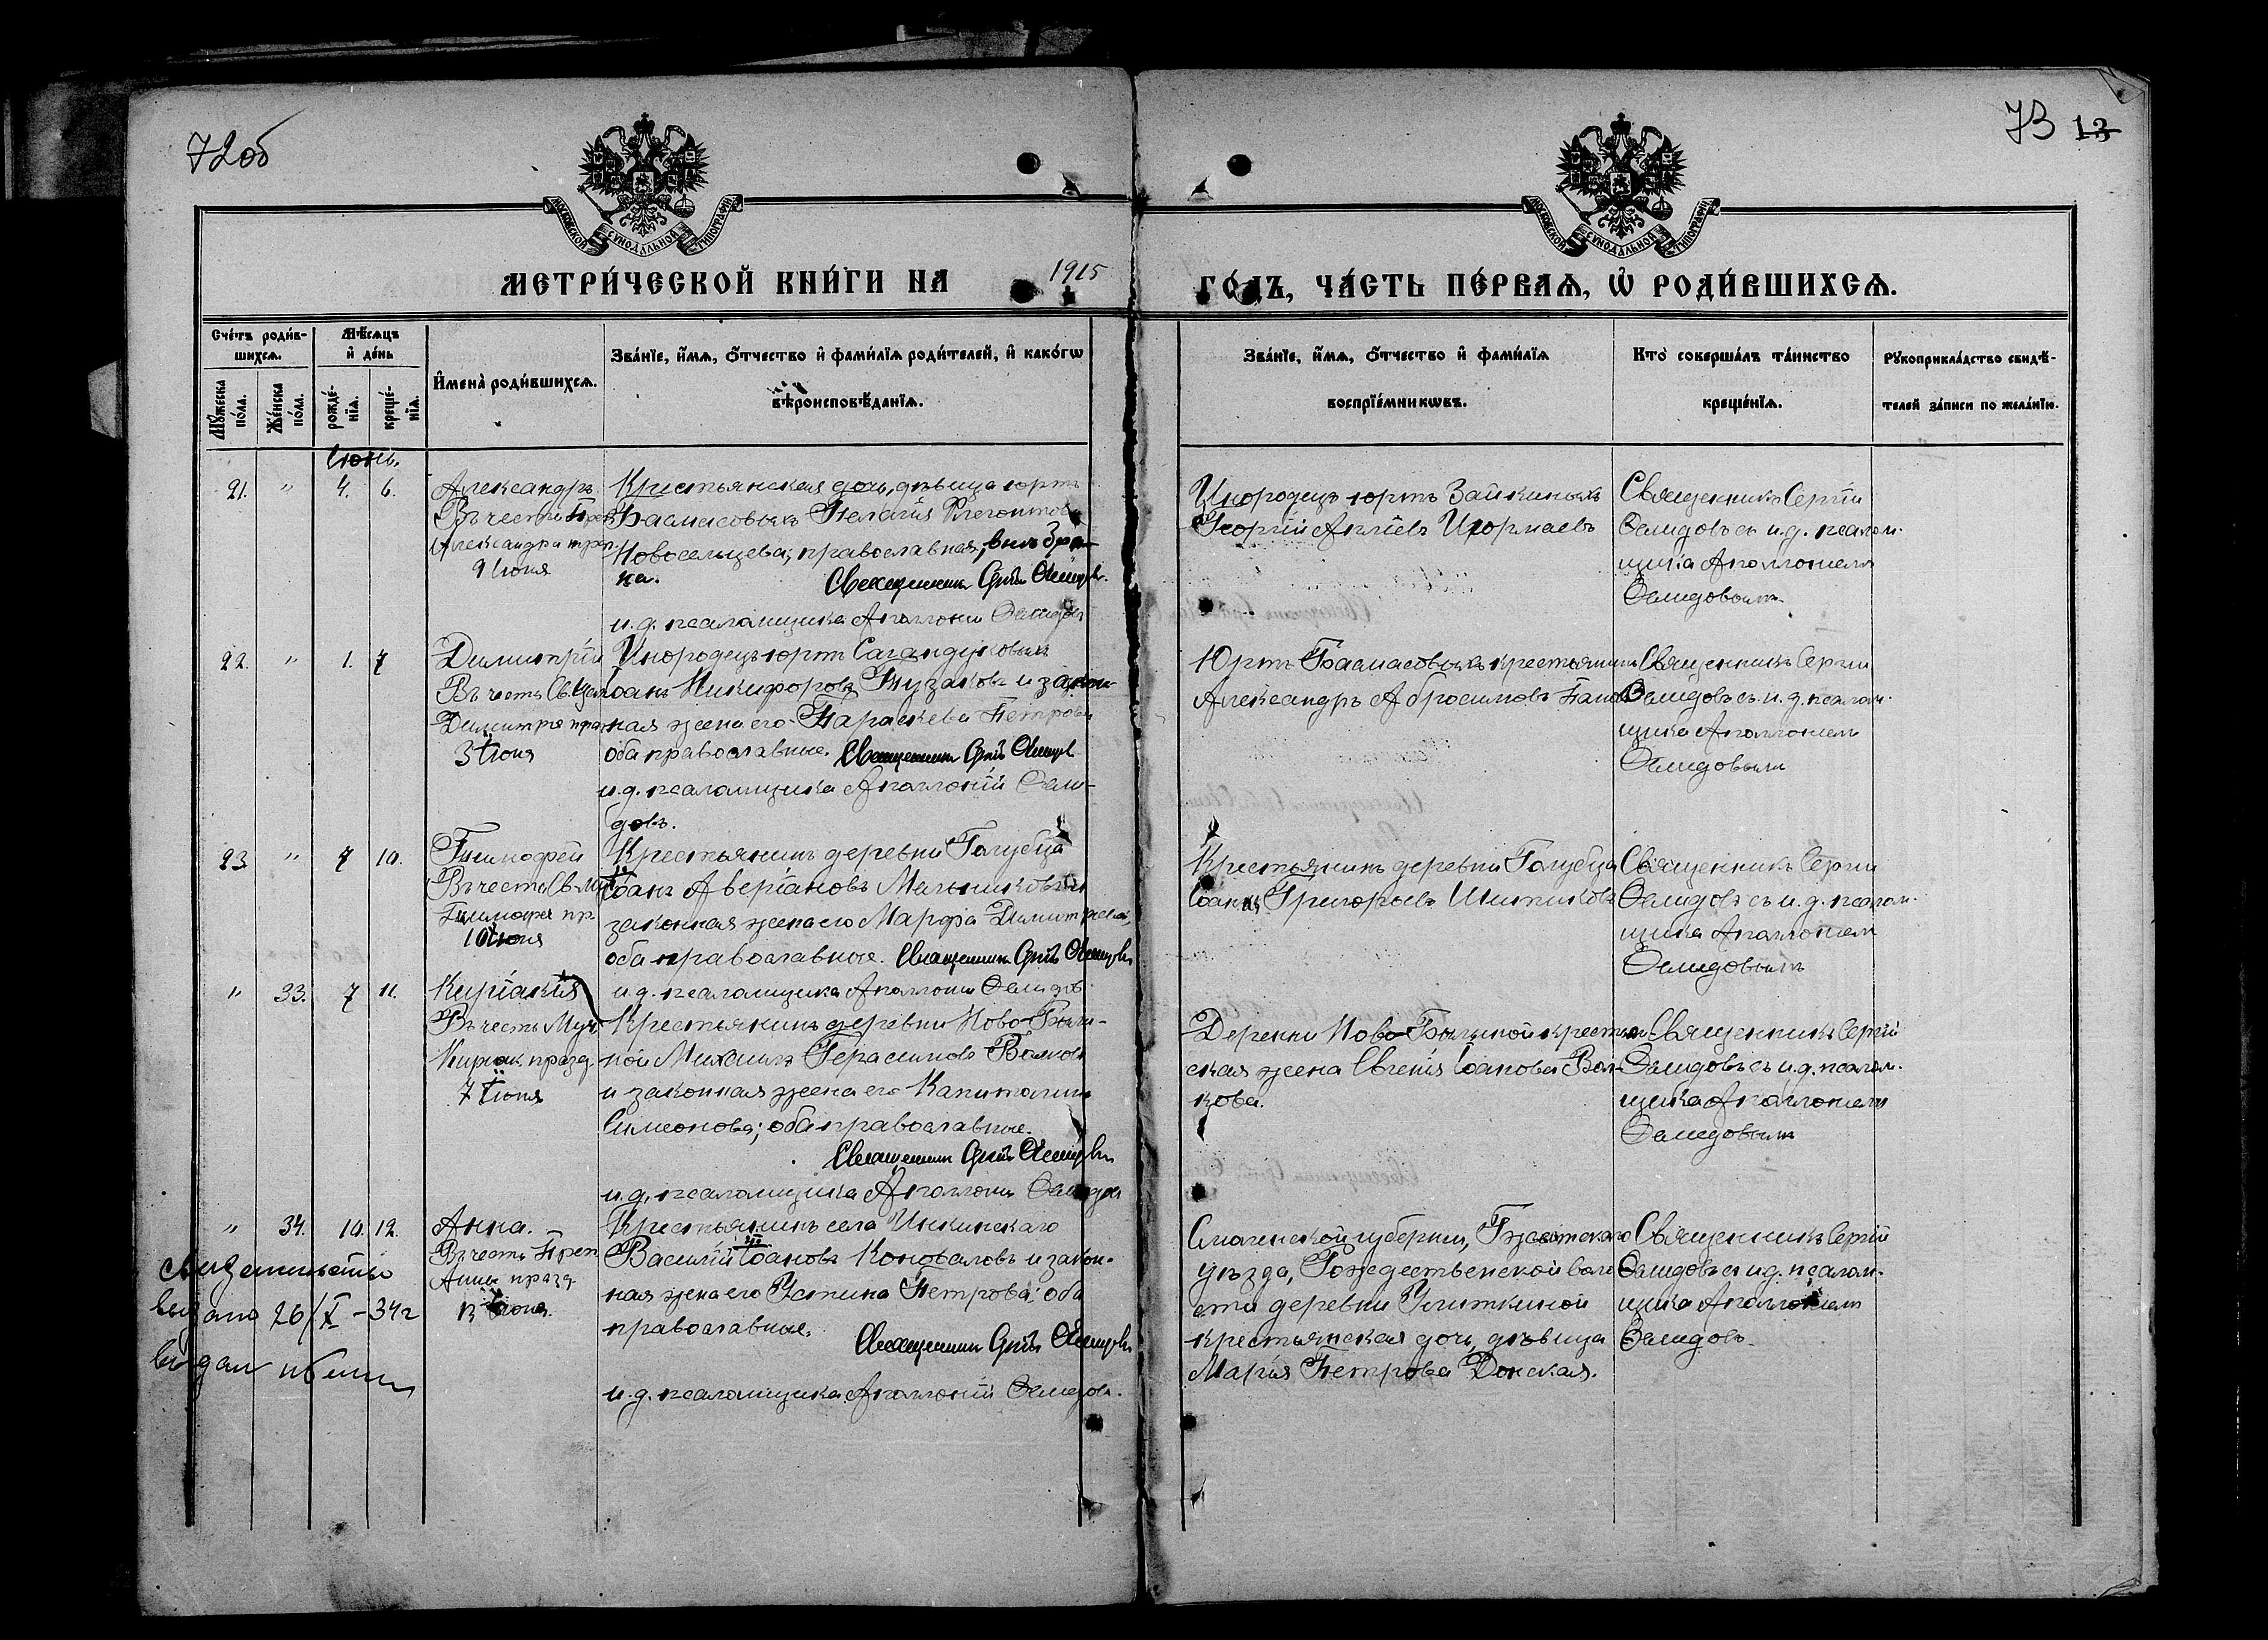 72об
73 13
МОСКОВСКОЙ СѴНОДАЛЬНОЙ ТИПОГРАФІИ
МОСКОВСКОЙ СѴНОДАЛЬНОЙ ТИПОГРАФІИ
МЕТРИ́ЧЕСКОЙ КНИ́ГИ НА 1915 ГО́ДЪ, ЧА́СТЬ ПЕ́РВАѦ, Ѡ҆ РОДИ́ВШИХСѦ.
Сче́тъ роди́в-
шихсѧ.
Мꙋ́жеска по́ла.
Же́нска по́ла.
Мѣ́сѧцъ
и҆ де́нь
рожде́-
нїѧ.
креще́-
нїѧ.
И҆мена̀ роди́вшихсѧ.
Зва́нїе, и҆́мѧ, ѻ҆́тчество и҆ фами́лїѧ роди́телей, и҆ како́гѡ
вѣроисповѣ́данїѧ.
Зва́нїе, и҆́мѧ, ѻ҆́тчество и҆ фами́лїѧ
воспрїе́мникѡвъ.
Кто̀ соверша́лъ та́инство
креще́нїѧ.
Рꙋкоприкла́дство свидѣ́-
телей за́писи по жела́нїю.
Іюнь.
21. " 4. 6.
Александръ
Въ честь Преп.
Александра праз.
9 Іюня
Крестьянская дочь, дѣвица юртъ
Басмасовыхъ Пелагія
Новосельцева; православная, внѣ бра-
ка. Священникъ Сергій Демидовъ.
и.д. псаломщика Аполлоній Демидовъ
Инородецъ юртъ Зайкиныхъ
Георгій
Священникъ Сергій
Демидовъ съ и.д. псалом-
щика Аполлоніемъ
Демидовымъ
22. " 1. 7
Димитрій
Въ честь Св. Цар.
Димитрія праз.
3 Іюня
Инородецъ юртъ
Іоаннъ Никифоровъ и закон-
ная жена его Параскева Петрова
оба православные. Священникъ Сергій Демидовъ
и.д. псаломщика Аполлоній Деми-
довъ.
Юртъ Басмасовыхъ крестьянинъ
Александръ Абросимовъ
Священникъ Сергій
Демидовъ съ и.д. псалом-
щика Аполлоніемъ
Демидовымъ
23 " 7 10.
Тимофей
Въ честь Св. Муч.
Тимофея пр.
10 Іюня
Крестьянинъ деревни Голубца
Іоаннъ Аверіановъ Мельниковъ и
законная жена его Марфа Димитріева,
оба православные. Священникъ Сергій Демидовъ
и.д. псаломщика Аполлоній Демидовъ
Крестьянинъ деревни Голубца
Іоаннъ Григорьевъ
Священникъ Сергій
Демидовъ съ и.д. псалом-
щика Аполлоніемъ
Демидовымъ
" 33. 7 11.
Киріакія
Въ честь Муч.
Киріак. празд.
7 Іюня
Крестьянинъ деревни Ново-
Михаилъ Герасимовъ Волковъ
и законная жена его Капитолина
Симеонова; оба православные.
Священникъ Сергій Демидовъ
и.д. псаломщика Аполлоній Демидовъ
Деревни Ново- крестьян-
ская жена Евгенія Іоанова Вол-
кова.
Священникъ Сергій
Демидовъ съ и.д. псалом-
щика Аполлоніемъ
Демидовымъ
" 34. 10. 12.
Анна.
Въ честь Преп.
Анны празд.
13 Іюня.
Крестьянинъ села Инкинскаго
Василій Іоановъ Коноваловъ и закон-
ная жена его Устина Петрова; оба
православные.
Священникъ Сергій Демидовъ
и.д. псаломщика Аполлоній Демидовъ.
Смоленской губерніи, Гжатскаго
уѣзда, Рождественской воло-
сти деревни
крестьянская дочь, дѣвица
Марія Петрова Донская.
Священникъ Сергій
Демидовъ и и.д. псалом-
щика Аполлоніемъ
Демидовъ.
Свидетельство
выдано 26/X-34г